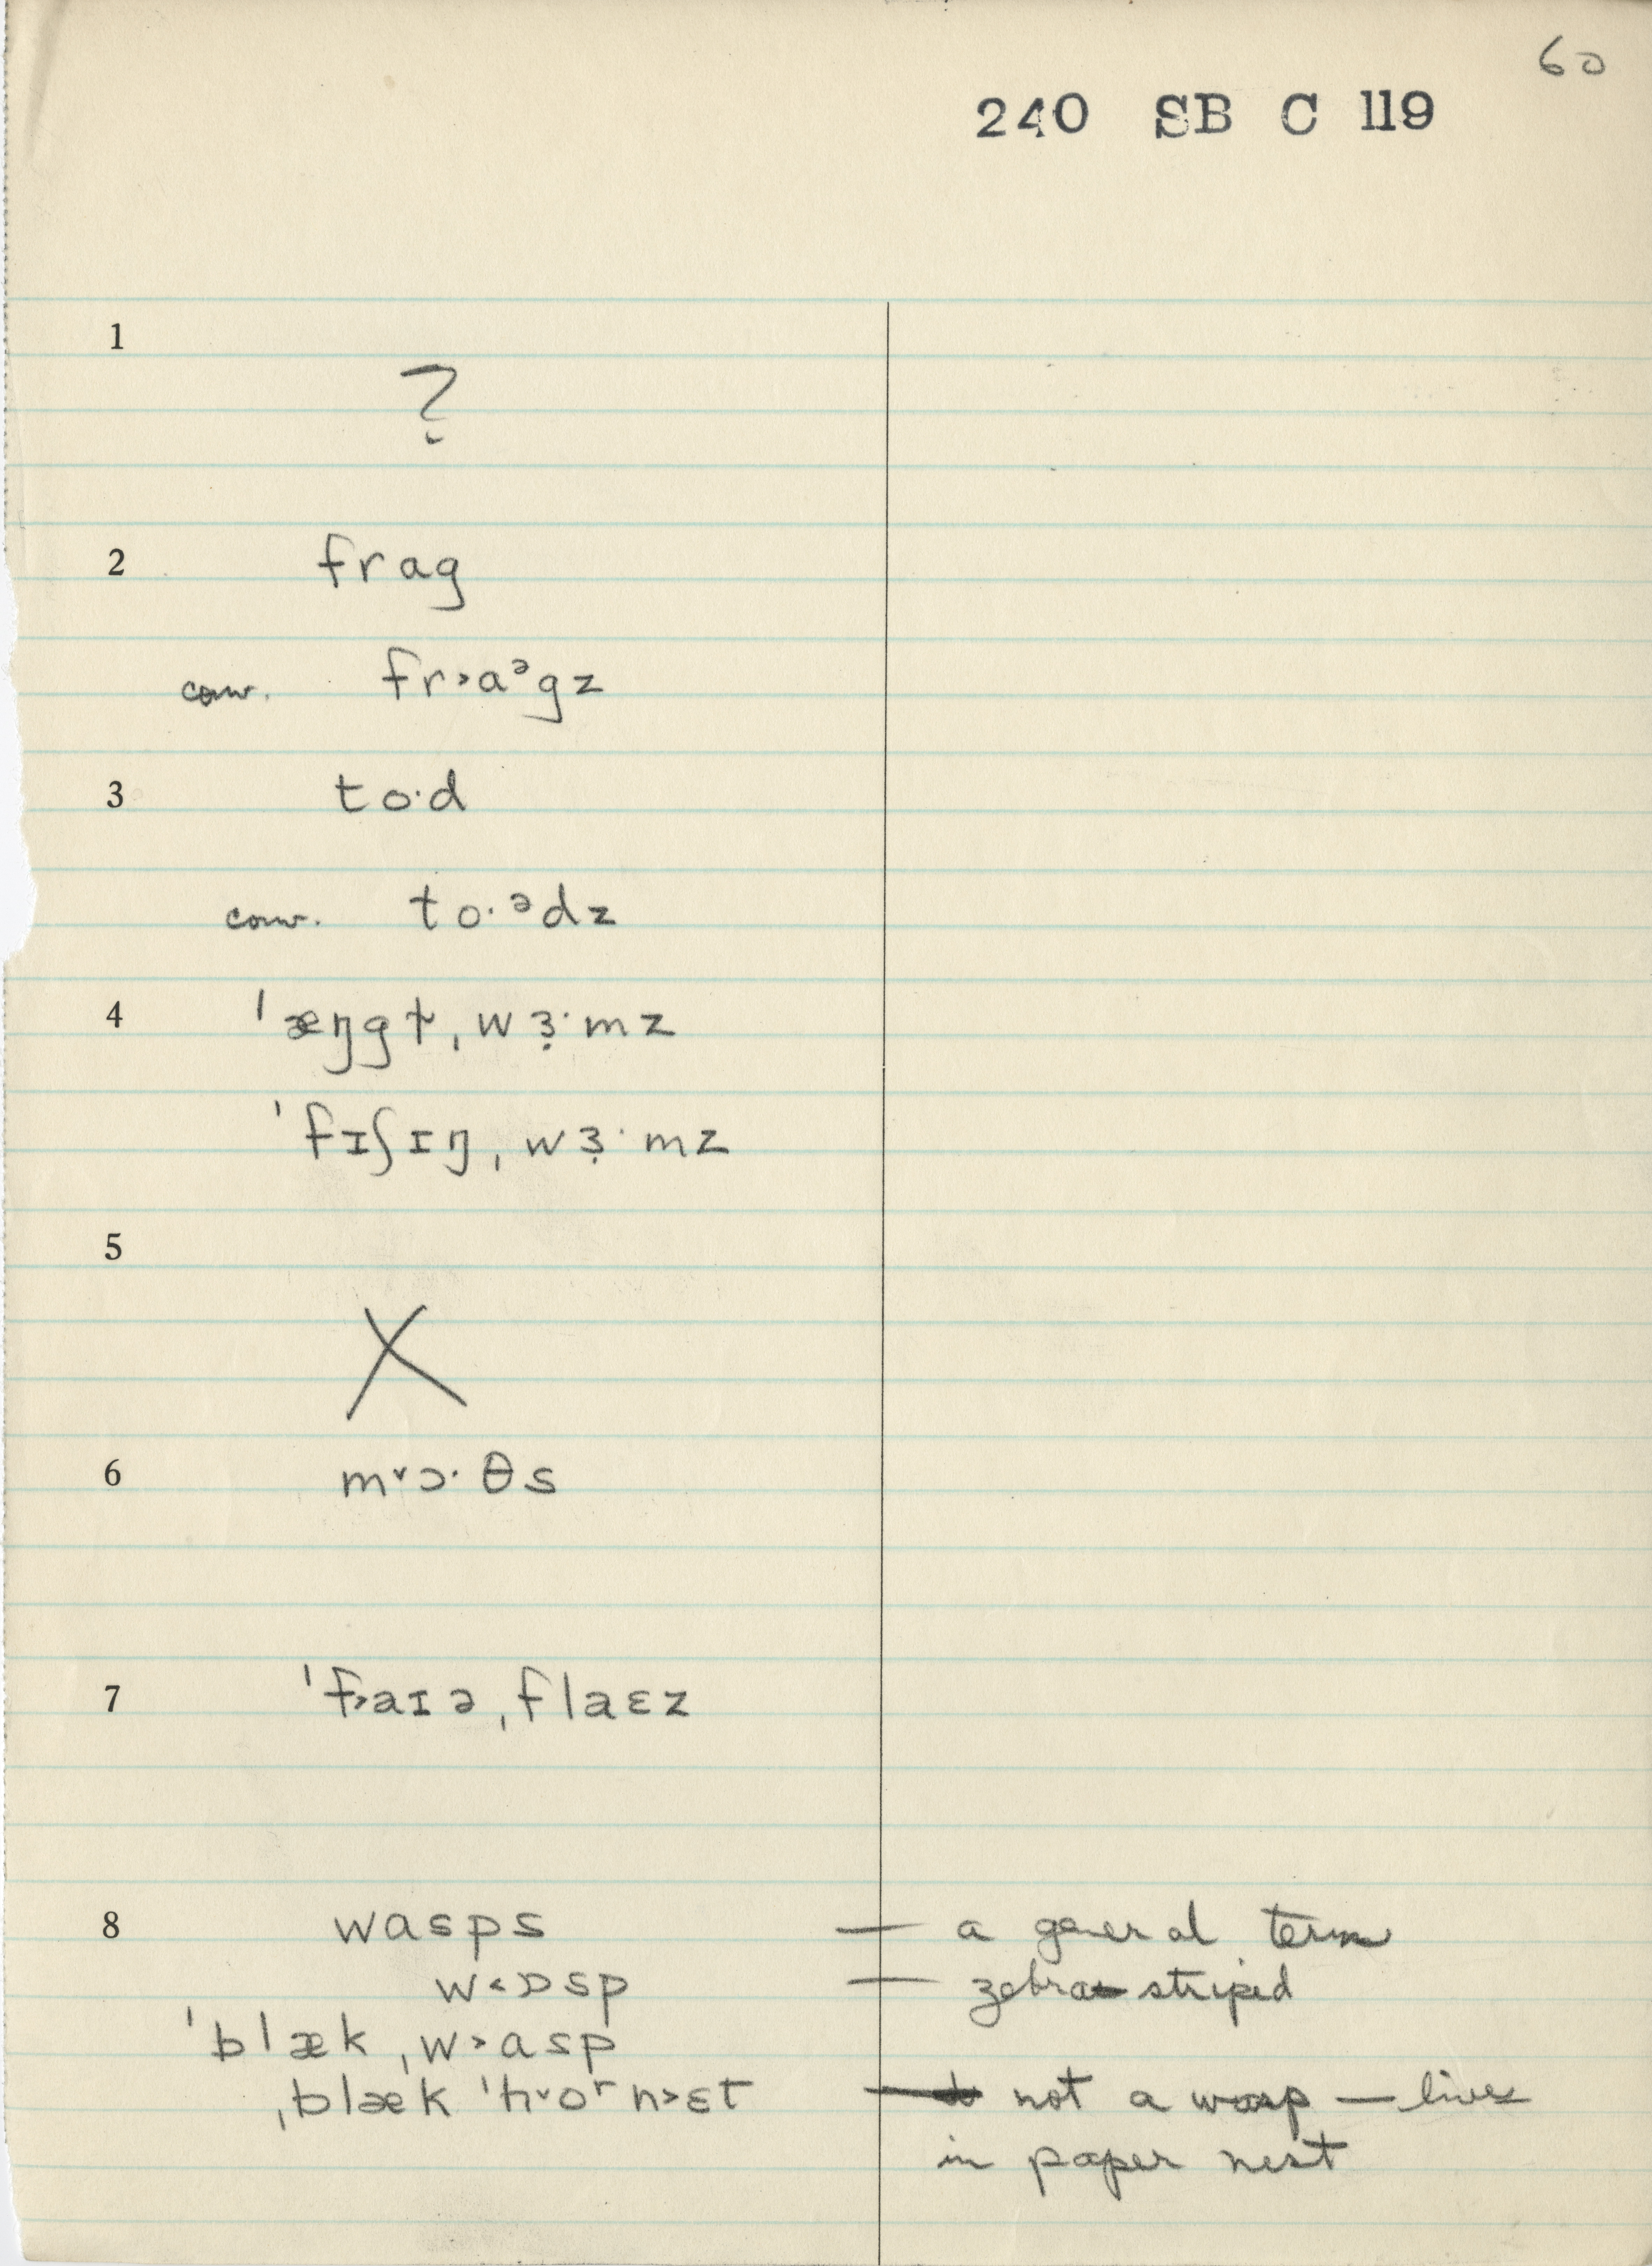 60
240 SB C 119
1
?
2 frag
conv. fr˃aᵊgz
3 to·d
conv. to·ᵊdz
4 ˈæŋgɫ, ˌwɜ̣·mz
ˈfɪʃɪŋˌwɜ̣·mz
5
X
6 m˅ɔ·θs
7 ˈf˃aɪəˌflaɛz
8 wasps — a general term
w˂ɒsp — zebra striped
ˈblækˌw˃asp
ˌblæk ˈh˅oʳn˃ɛt — not a wasp — lives
in paper nest